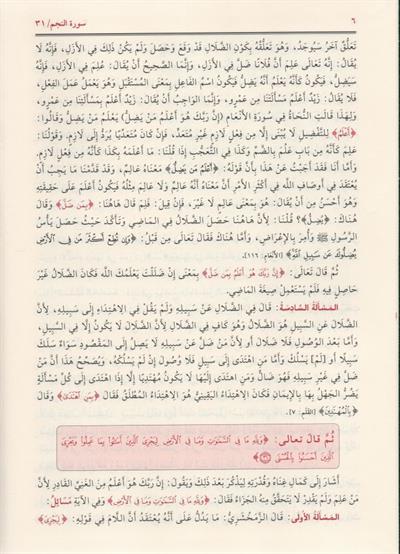 ٦
سورة النجم/ ٣١
تعلُّق آخر سيُوجد، وهو تعلُّقه بكون الضلال قد وقع وحصل ولم يكن ذلك في الأزل، فإنه لا
يقال: إنه تعالى علم أن فلانًا ضل في الأزل، وإنما الصحيح أن يقال: علم في الأزل، فإنه
سيضل، فيكون كأنه يعلم أنه يضل فيكون اسم الفاعل بمعنى المستقبل وهو يعمل عمل الفعل،
فلا يقال: زيد أعلم مسألتنا من عمرو، وإنما الواجب أن يقال: زيد أعلم بمسألتنا من عمرو،
ولهذا قالت النحاة في سورة الأنعام ﴿إن ربك هو أعلم من يضل﴾ يعلم من يضل وقالوا:
﴿أعلم﴾ للتفضيل لا يبنى إلا من فعل لازم غير متعد، فإن كان متعديًا يرد إلى لازم. وقولنا:
علم كأنه من باب علم بالضم وكذا في التعجب إذا قلنا: ما أعلمه بكذا كأنه من فعل لازم.
وأما أنا فقد أجبت عن هذا بأن قوله: ﴿أعلم من يضل﴾ معناه عالم، وقد قدمنا ما يجب أن
يعتقد في أوصاف الله في أكثر الأمر أن معناه أنه عالم ولا عالم مثله فيكون أعلم على حقيقته
وهو أحسن من أن يقال: هو بمعنى عالم لا غير، فإن قيل: فلم قال هاهنا: ﴿بمن ضل﴾ وقال
هناك: ﴿يضل﴾؟ قلنا: لأن هاهنا حصل الضلال في الماضي وتأكد حيث حصل يأس
الرسول ﷺ وأمر بالإعراض، وأما هناك فقال تعالى من قبل: ﴿وإن تطع أكثر من في الأرض
يضلوك عن سبيل الله﴾ [الأنعام: ١١٦].
ثم قال تعالى: ﴿إن ربك هو أعلم بمن ضل﴾ بمعنى إن ضللت يعلمك الله فكان الضلال غير
حاصل فيه فلم يستعمل صيغة الماضي.
المسألة السادسة: قال في الضلال عن سبيله ولم يقل في الاهتداء إلى سبيله، لأن
الضلال عن السبيل هو الضلال وهو كاف في الضلال لأن الضلال لا يكون إلا في السبيل،
وأما بعد الوصول فلا ضلال أو لأن من ضل عن سبيله لا يصل إلى المقصود سواء سلك
سبيلًا أو [لم] يسلك وأما من اهتدى إلى سبيل فلا وصول إن لم يسلكه، ويصحح هذا أن من
ضل في غير سبيله فهو ضال ومن اهتدى إليها لا يكون مهتديًا إلا إذا اهتدى إلى كل مسألة
يضر الجهل بها بالإيمان فكان الاهتداء اليقيني هو الاهتداء المطلق فقال ﴿بمن اهتدى﴾ وقال
﴿بالمهتدين﴾ [القلم: ٧].
ثم قال تعالى: ﴿ولله ما في السموات وما في الأرض ليجزي الذين أساءوا بما عملوا ويجزي
الذين أحسنوا بالحسنى ٣١﴾
أشار إلى كمال غناه وقدرته ليذكر بعد ذلك ويقول: إن ربك هو أعلم من الغني القادر لأن
من علم ولم يقدر لا يتحقق منه الجزاء فقال: ﴿ولله ما في السموات وما في الأرض﴾ وفي الآية مسائل:
المسألة الأولى: قال الزمخشري: ما يدل على أنه يعتقد أن اللام في قوله: ﴿ليجزي﴾